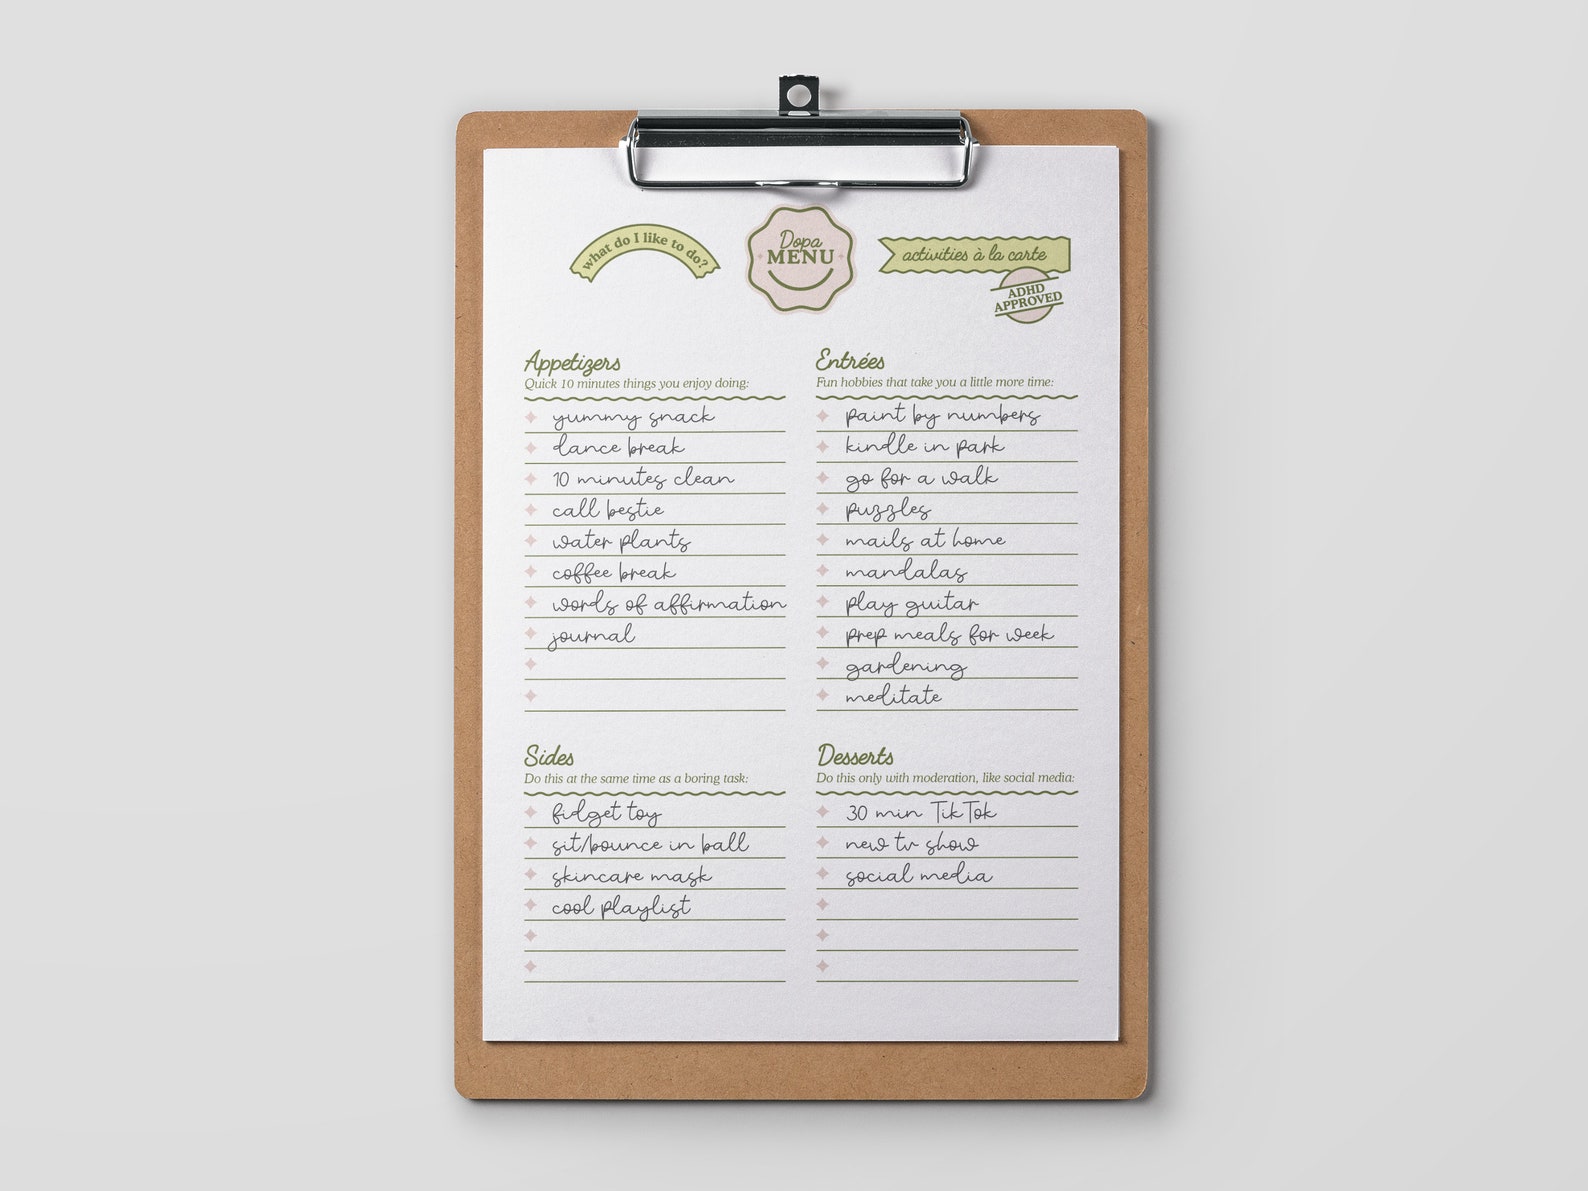 what do I like to do?
Dopa
MENU
activities à la carte
ADHD
APPROVED
Appetizers
Quick 10 minutes things you enjoy doing:
yummy snack
dance break
10 minutes clean
call bestie
water plants
coffee break
words of affirmation
journal
Entrées
Fun hobbies that take you a little more time:
paint by numbers
kindle in park
go for a walk
puzzles
mails at home
mandalas
play guitar
prep meals for week
gardening
meditate
Sides
Do this at the same time as a boring task:
fidget toy
sit/bounce in ball
skincare mask
cool playlist
Desserts
Do this only with moderation, like social media:
30 min TikTok
new tv show
social media